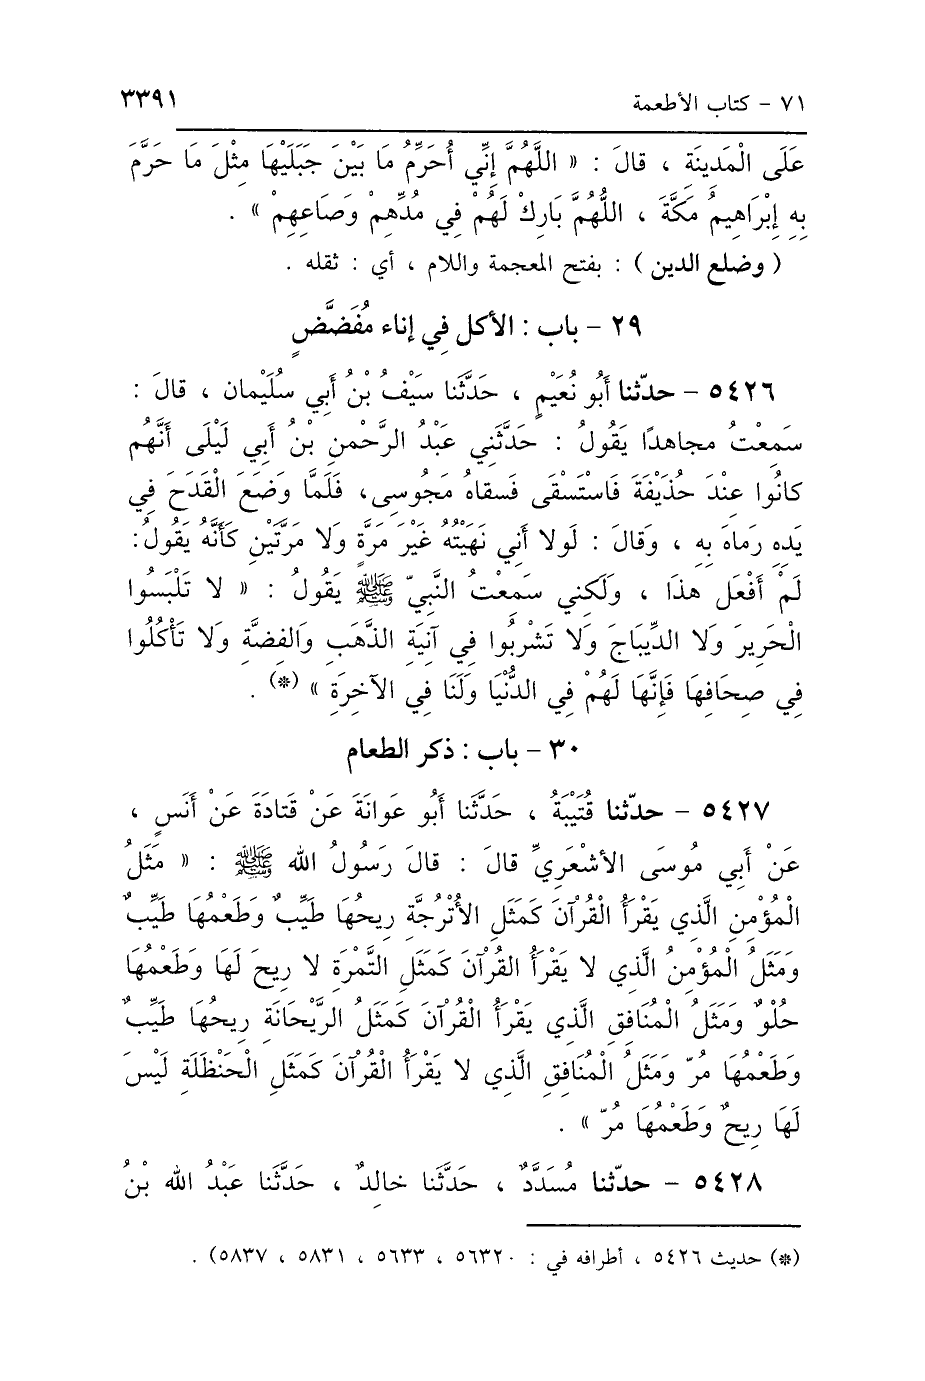 ٧١ - كتاب الأطعمة ٣٣٩١
عَلَى الْمَدِينَةِ ، قالَ : « اللَّهُمَّ إِنِّي أُحَرِّمُ مَا بَيْنَ جَبَلَيْهَا مِثْلَ مَا حَرَّمَ
بِهِ إِبْرَاهِيمُ مَكَّةَ ، اللَّهُمَّ بَارِكْ لَهُمْ فِي مُدِّهِمْ وَصَاعِهِمْ » .
( وضلع الدين ) : بفتح المعجمة واللام ، أي : ثقله .
٢٩ - باب : الأكل فِي إناء مُفَضَّضٍ
٥٤٢٦ - حدّثنا أَبُو نُعَيْمٍ ، حَدَّثَنا سَيْفُ بْنُ أَبِي سُلَيْمان ، قالَ :
سَمِعْتُ مجاهدًا يَقُولُ : حَدَّثَنِي عَبْدُ الرَّحْمنِ بْنُ أَبِي لَيْلَى أَنَّهُم
كانُوا عِنْدَ حُذَيْفَةَ فَاسْتَسْقَى فَسقاهُ مَجُوسِى، فَلَمَّا وَضَعَ الْقَدَحَ فِي
يَدِهِ رَماهَ بِهِ ، وَقالَ : لَولا أَنِي نَهَيْتُهُ غَيْرَ مَرَّةٍ وَلا مَرَّتَيْنِ كَأَنَّهُ يَقُولُ:
لَمْ أَفْعَل هذَا ، وَلَكِنِي سَمِعْتُ النَّبِيّ ﷺ يَقُولُ : « لا تَلْبَسُوا
الْحَرِيرَ وَلا الدِّيباجَ وَلا تَشْرِبُوا فِي آنِيَةِ الذَّهَبِ وَالفِضَّةِ وَلا تَأْكُلُوا
فِي صِحَافِهَا فَإِنَّهَا لَهُمْ فِي الدُّنْيَا وَلَنَا فِي الآخِرَةِ » (*) .
٣٠ - باب : ذكر الطعام
٥٤٢٧ - حدّثنا قُتَيْبَةُ ، حَدَّثَنا أَبُو عَوانَةَ عَنْ قَتادَةَ عَنْ أَنَسٍ ،
عَنْ أَبِي مُوسَى الأَشْعَرِيِّ قالَ : قالَ رَسُولُ الله ﷺ : « مَثَلُ
الْمُؤْمِنِ الَّذِي يَقْرَأُ الْقُرْآنَ كَمَثَلِ الأُتْرُجَّةِ رِيحُهَا طَيِّبٌ وَطَعْمُهَا طَيِّبٌ
وَمَثَلُ الْمُؤْمِنُ الَّذِي لا يَقْرَأُ القُرْآنَ كَمَثَلِ التَّمْرَةِ لا رِيحَ لَهَا وَطَعْمُهَا
حُلْوٌ وَمَثَلُ الْمُنَافِقِ الَّذِي يَقْرَأُ الْقُرْآنَ كَمَثَلُ الرَّيْحَانَةِ رِيحُهَا طَيِّبٌ
وَطَعْمُهَا مُرّ وَمَثَلُ الْمُنَافِقِ الَّذِي لا يَقْرَأُ الْقُرْآنَ كَمَثَلِ الْحَنْظَلَةِ لَيْسَ
لَهَا رِيحٌ وَطَعْمُهَا مُرّ » .
٥٤٢٨ - حدّثنا مُسَدَّدٌ ، حَدَّثَنا خالِدٌ ، حَدَّثَنا عَبْدُ الله بْنُ
(*) حديث ٥٤٢٦ ، أطرافه في : ٥٦٣٢٠ ، ٥٦٣٣ ، ٥٨٣١ ، ٥٨٣٧) .